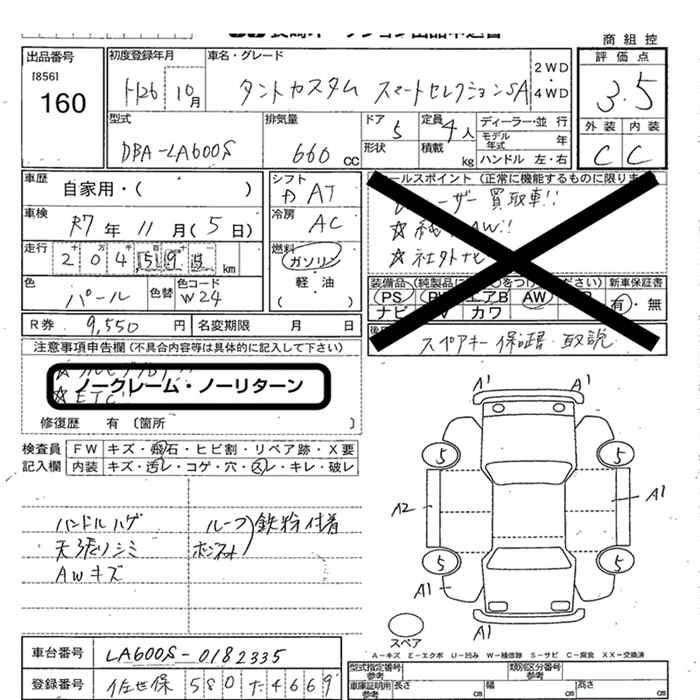 商組控
出品番号
[856]
160
初度登録年月
H26 10月
車名・グレード
タントカスタム スマートセレクションSA
2WD
・
4WD
評価点
3.5
外装 内装
C C
型式
DBA-LA600S
排気量
660 cc
ドア 5
形状
定員 4人
積載 kg
ディーラー・並行
モデル年式 年
ハンドル 左・右
車歴
自家用・( )
シフト
AT
車検
R7年 11月(5日)
冷房
AC
走行
km
燃料
ガソリン
軽・油
( )
色
パール
色替
色コード
W24
R券 9,550円
名変期限 月 日
ールスポイント(正常に機能するものに限りま
ーザー買取車!!
☆社外ナビ
新車保証書
有・無
PS
エアB
AW
ナビ
カワ
スペアキー 保証書 取説
注意事項申告欄(不具合内容等は具体的に記入して下さい)
ノークレーム・ノーリターン
☆ETC
修復歴 有 〔箇所 〕
検査員記入欄
FW キズ・飛石・ヒビ割・リペア跡・X要
内装 キズ・汚レ・コゲ・穴・スレ・キレ・破レ
ハンドルハゲ
天張リシミ
AWキズ
ルーフ
ボンネット
鉄粉付着
A1 A1
5 5
A2 A1
5 5
A1 A1
スペア
A-キズ E-エクボ U-凹み W-補修跡 S-サビ C-腐食 XX-交換済
車台番号
LA600S-0182335
登録番号
佐世保 580 た 4669
型式指定番号
参考
類別区分番号
参考
車庫証明用
参考
長さ cm
幅 cm
高さ cm